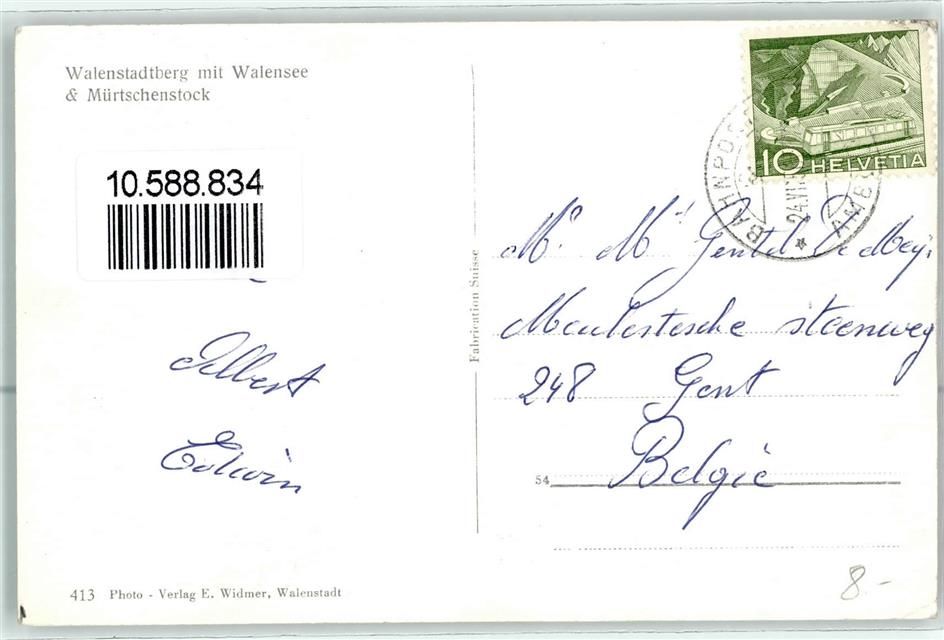 Walenstadtberg mit Walensee
& Mürtschenstock
10.588.834
Albert
Edwin
413 Photo - Verlag E. Widmer, Walenstadt
Fabrication Suisse
10 HELVETIA
BAHNPOS
24.VII
AMB
Gentil De Mey.
steenweg
248 Gent
België
54
8.-